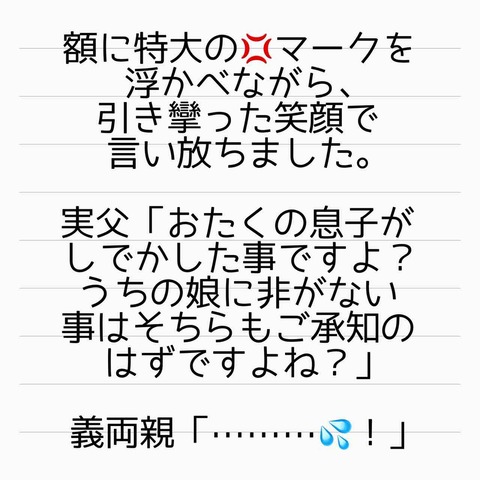 額に特大の💢マークを
浮かべながら、
引き攣った笑顔で
言い放ちました。
実父「おたくの息子が
しでかした事ですよ？
うちの娘に非がない
事はそちらもご承知の
はずですよね？」
義両親「………💦！」